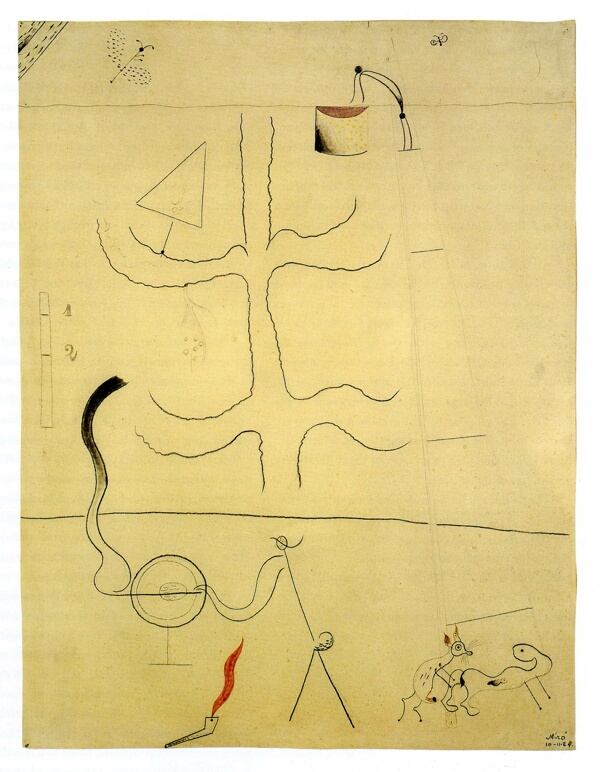 1
2
Miró
10-11-24.